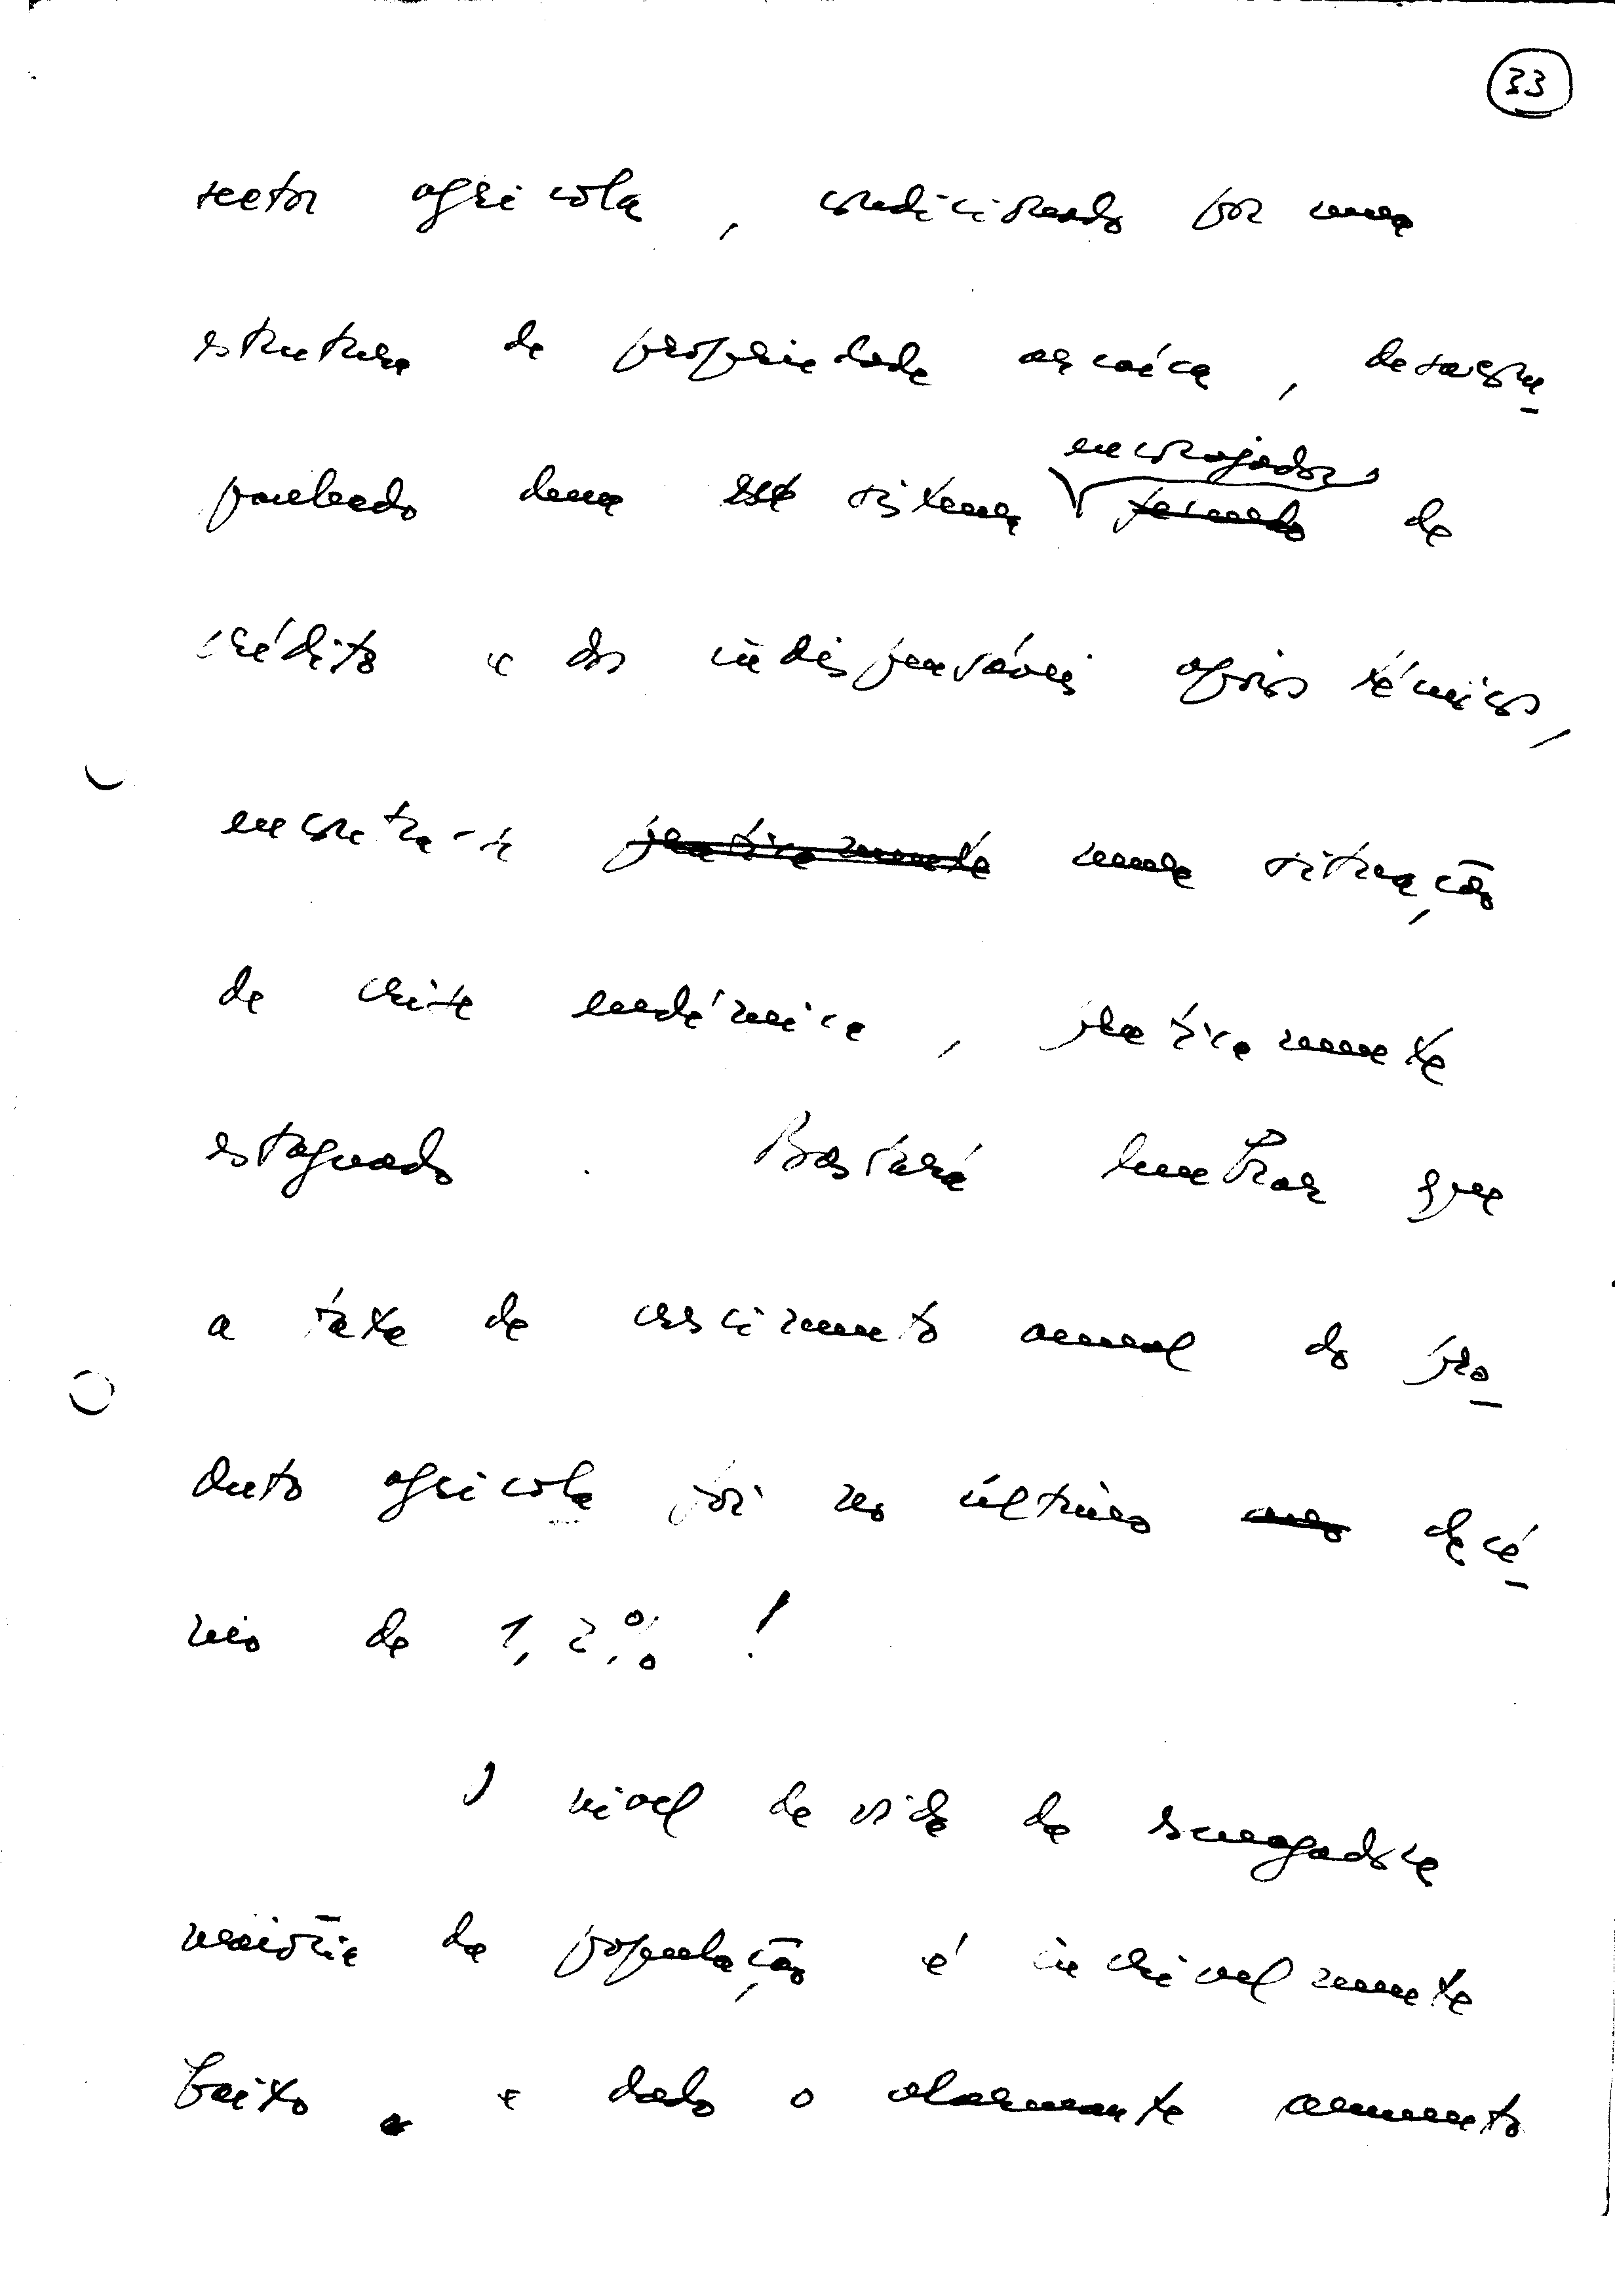 33
sector agricola, condicionado por uma
estrutura de propriedade arcaica, desacom
panhado dum sistema encorajador de
crédito e dos indispensáveis apoios técnicos,
encontra-se praticamente numa situação
de crise endémica, praticamente
estagnado. Bastará lembrar que
a taxa de crescimento anual do pro
duto agricola foi no último ano decé
nio de 1,2% !
O nivel de vida da esmagadora
maioria da população é incrivelmente
baixo e dado o alarmante aumento